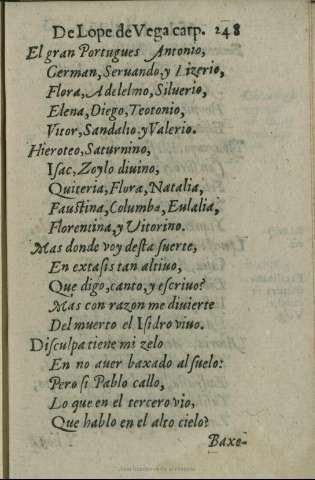 De Lope de Vega carp. 248
El gran Portugues Antonio,
German, Seruando, y Lizerio,
Flora, Adelelmo, Siluerio,
Elena, Diego, Teotonio,
Vitor, Sandalio. y Valerio.
Hieroteo, Saturnino,
Isac, Zoylo diuino,
Quiteria, Flora, Natalia,
Faustina, Columba, Eulalia,
Florentina, y Vitorino.
Mas donde voy desta suerte,
En extasis tan altiuo,
Que digo, canto, y escriuo?
Mas con razon me diuierte
Del muerto el Isidro viuo.
Disculpa tiene mi zelo
En no auer baxado al suelo:
Pero si Pablo callo,
Lo que en el tercero vio,
Que hablo en el alto cielo?
Baxe-